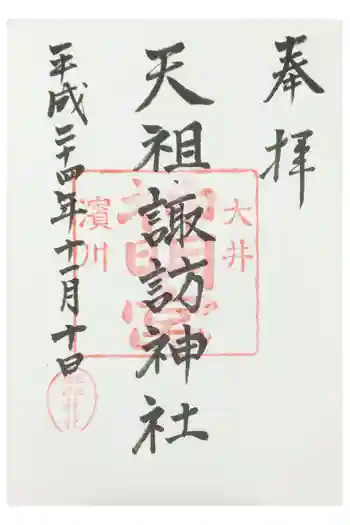 奉拝
天祖諏訪神社
平成二十四年十一月十日
大井
濱川
神明宮